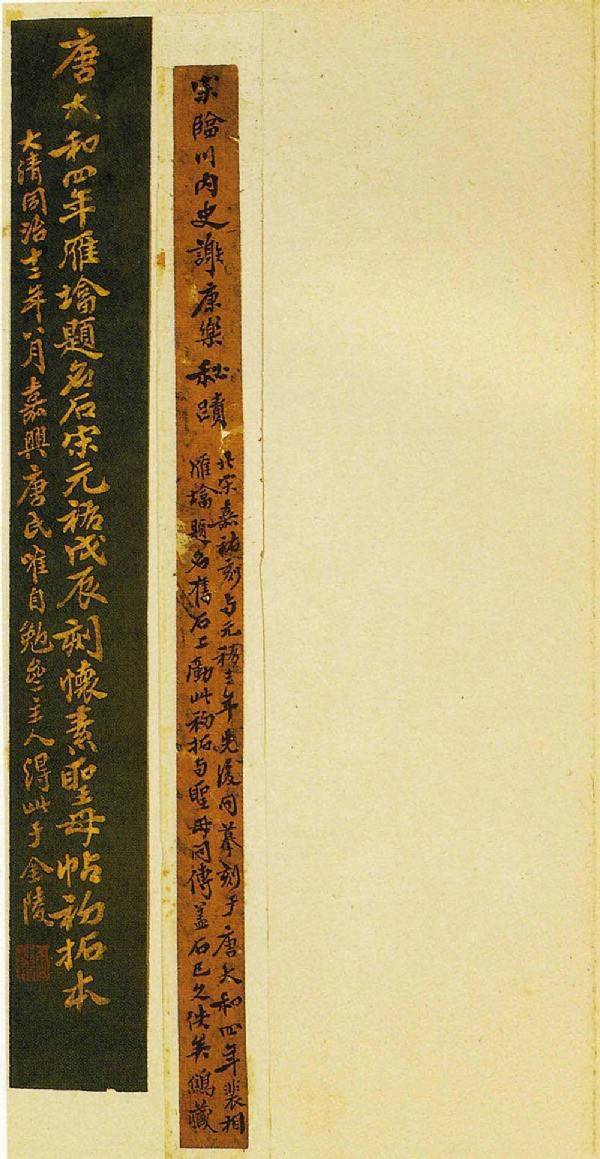 宋臨川内史謝康樂秘蹟
北宋嘉祐刻与元祐三年先後同摹刻于唐大和四年裴相
雁墖題名舊石上此初拓与聖母同傳蓋石已久佚矣藏
唐大和四年雁墖題名石宋元祐戊辰刻懷素聖母帖初拓本
大清同治十三年八月嘉興唐氏唯自勉盦主人得此于金陵